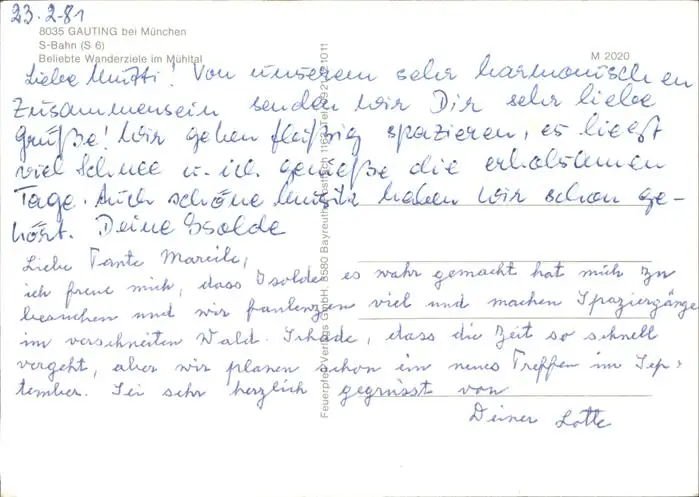 23.2-81
8035 GAUTING bei München
S-Bahn (S 6)
Beliebte Wanderziele im Mühltal
M 2020
Liebe Mutti! Von unserem sehr harmonischen
Zusammensein senden wir Dir sehr liebe
Grüße! Wir gehen fleißig spazieren, es liegt
viel Schnee u. ich genieße die erholsamen
Tage. Auch schöne Musik haben wir schon ge-
hört. Deine Isolde
Liebe Tante Mareile,
ich freue mich, dass Isolde es wahr gemacht hat mich zu
besuchen und wir faulenzen viel und machen Spaziergänge
im verschneiten Wald. Schade, dass die Zeit so schnell
vergeht, aber wir planen schon ein neues Treffen im Sep-
tember. Sei sehr herzlich gegrüsst von
Deiner Lotte
Feuerpfeil-Verlags GmbH, 8580 Bayreuth, Postfach 1162, Tel. 0921/21011